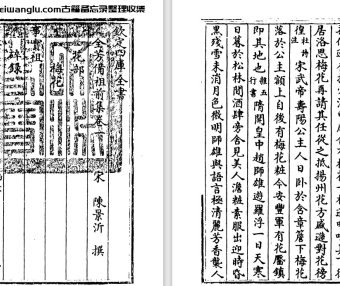 eiwanglu.com古籍备忘录整理收集
欽定四庫全書
全芳備祖前集卷一
宋 陳景沂 撰
花部
梅花
事實祖
碎錄
居洛思梅花再請其任從之抵揚州花方盛遶對花徬
徨 杜詩註 宋武帝壽陽公主人日卧於含章簷下梅花
落於公主額上自後有梅花粧今安豐軍有花靨鎮
即其地也 雜五行書 隋開皇中趙師雄遊羅浮一日天寒
日暮於松林間酒肆旁舍見美人澹粧素服出迎時昏
黑殘雪未消月色微明師雄與語言極清麗芳香襲人